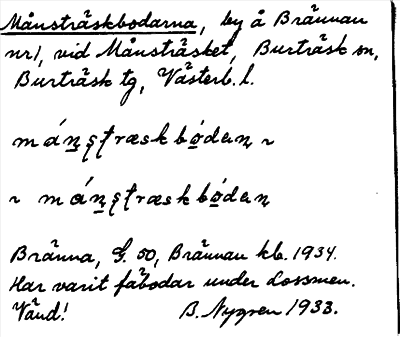 Månsträskbodarna, by å Brännan
nr 1, vid Månsträsket, Burträsk sn,
Burträsk tg, Västerb. l.
Bränna, G. 50, Brännan kb. 1934.
Har varit fäbodar under Lossmen.
Vänd! B. Nygren 1933.